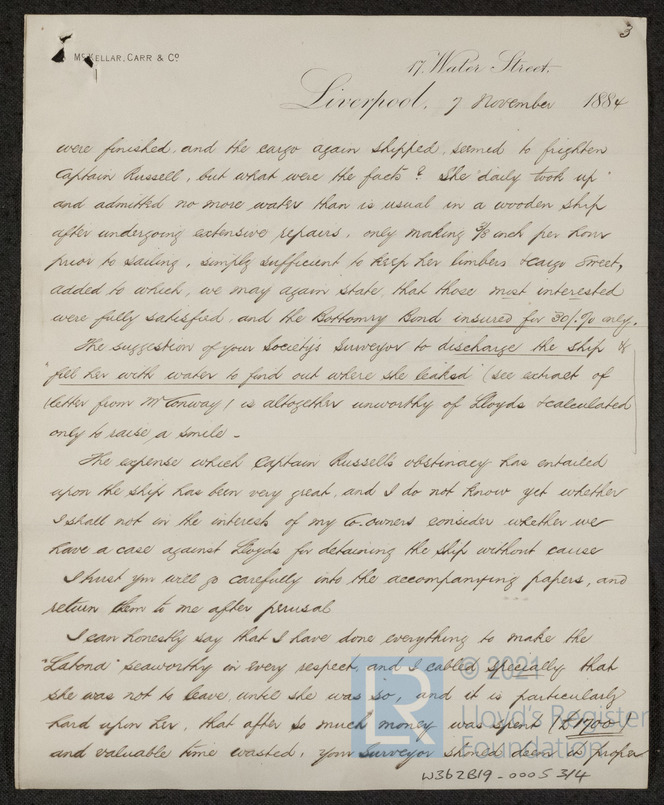 3
McKellar, Carr & Co
17, Water Street,
Liverpool, 7 November 1884
were finished, and the cargo again shipped, seemed to frighten
Captain Russell, but what were the facts? She "daily took up"
and admitted no more water than is usual in a wooden ship
after undergoing extensive repairs, only making 3/8 inch per hour
prior to sailing, simply sufficient to keep her limbers & cargo sweet,
added to which, we may again state, that those most interested
were fully satisfied, and the Bottomry Bond insured for 30/. % only.
The suggestion of your Society's Surveyor to discharge the ship &
"fill her with water to find out where she leaked" (see extract of
letter from Mr Conway) is altogether unworthy of Lloyds & calculated
only to raise a smile -
The expense which Captain Russell's obstinacy has entailed
upon the ship has been very great, and I do not know yet whether
I shall not in the interests of my Co. owners consider whether we
have a case against Lloyds for detaining the ship without cause
I trust you will go carefully into the accompanying papers, and
return them to me after perusal
I can honestly say that I have done everything to make the
"Latona" seaworthy in every respect, and I cabled specially that
she was not to leave until she was so, and it is particularly
hard upon her, that after so much money was spent (£1700)
and valuable time wasted, your Surveyor should deem it proper
W362B19-0005 3/4
LR
© 2021
Lloyd's Register
Foundation